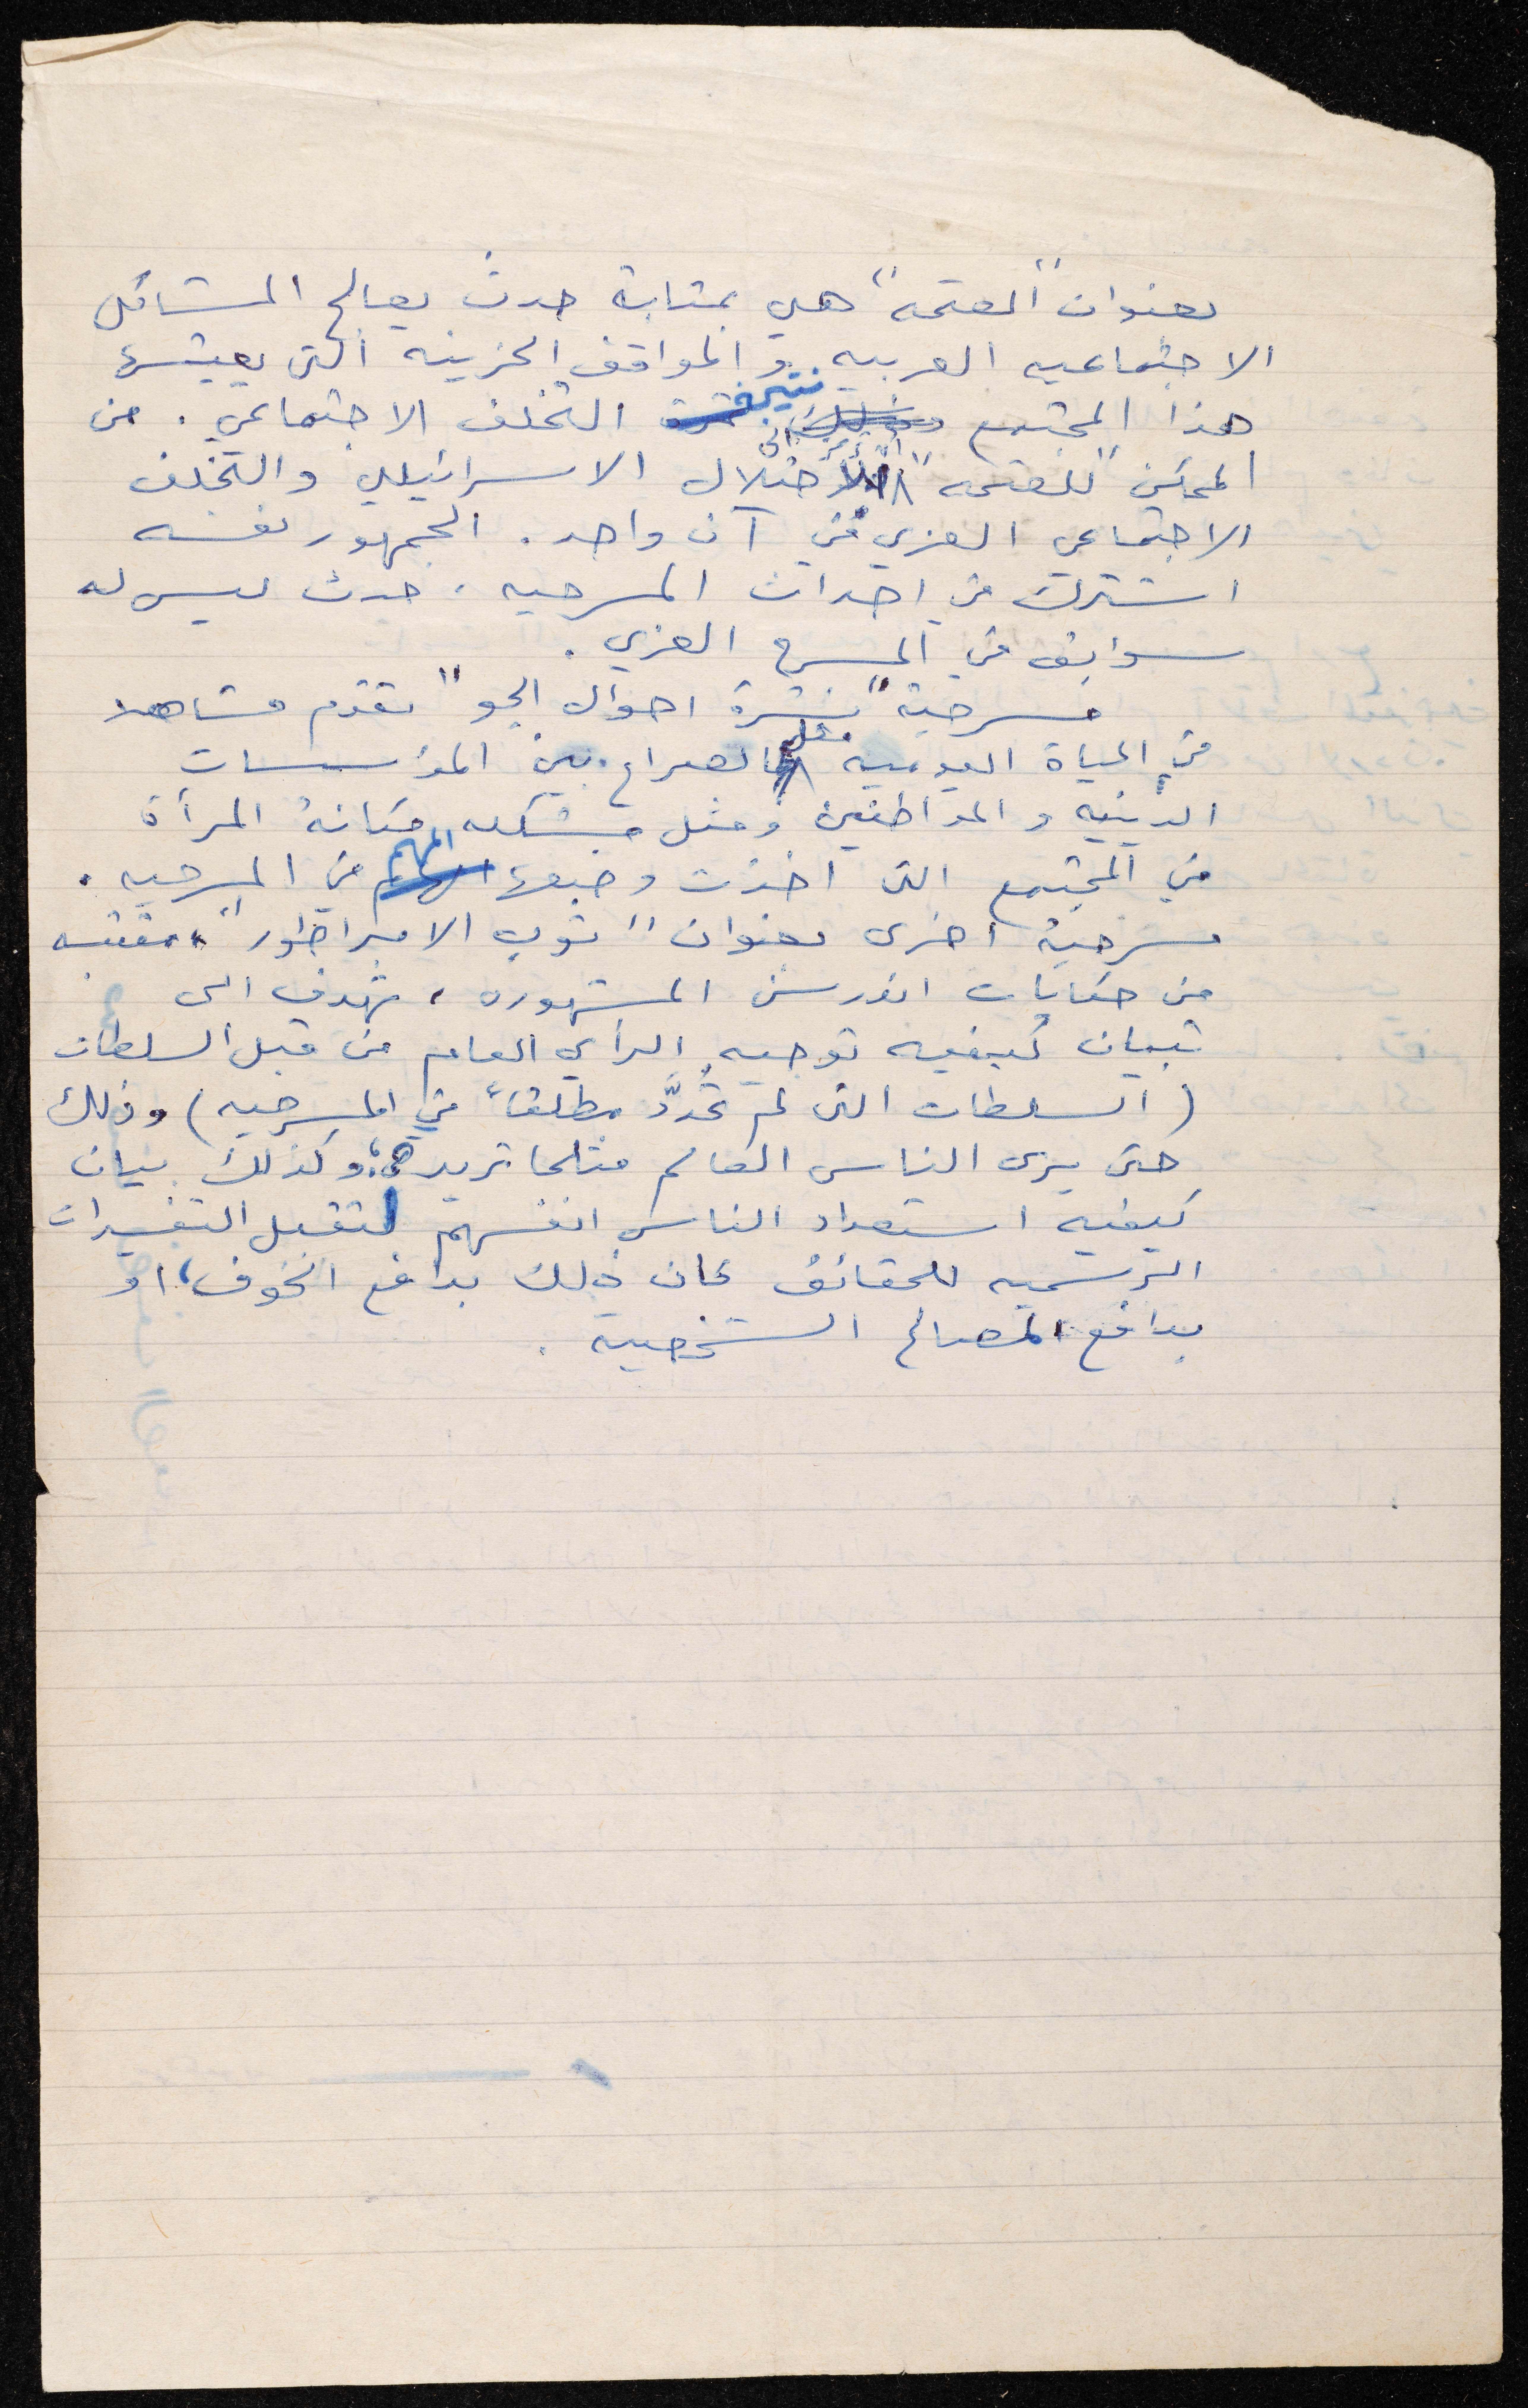 بعنوان "العتمه" هي بمثابة حدث يعالج المشاكل
الاجتماعيه العربيه والمواقف الحزينه التي يعيشها
هذا المجتمع نتيجة التخلف الاجتماعي. من
الممكن "للعتمه" ان ترمز الى الاحتلال الاسرائيلي والتخلف
الاجتماعي العربي في آن واحد. الجمهور نفسه
اشترك في احداث المسرحيه، حدث ليس له
سوابق في المسرح العربي.
مسرحية "نشرة احوال الجو" تقدم مشاهد
من الحياة اليوميه مثل الصراع بين المؤسسات
الدينيه والمواطنين ومثل مشكله مكانة المرأة
في المجتمع التي اخذت وضعها المهم في المسرحيه.
مسرحية اخرى بعنوان "ثوب الامبراطور" مقتبسه
من حكايات اندرسن المشهوره، تهدف الى
تبيان كيفيه توجيه الرأي العام من قبل السلطات
(السلطات التي لم تُحدَّد مطلقاً في المسرحيه) وذلك
حتى يرى الناس العالم مثلما تريده، وكذلك بيان
كيفيه استعداد الناس انفسهم لتقبل التفسيرات
الرسميه للحقائق كان ذلك بدافع الخوف، او
بدافع المصالح الشخصية.